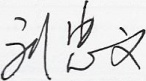 刘忠文